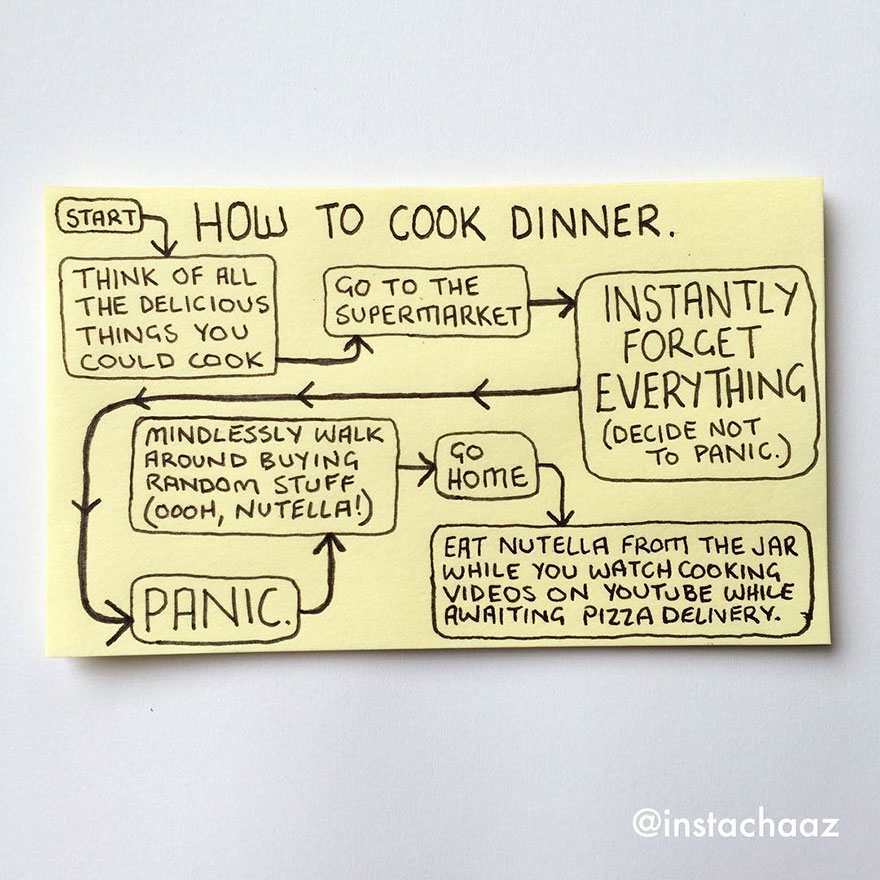 START
HOW TO COOK DINNER.
THINK OF ALL
THE DELICIOUS
THINGS YOU
COULD COOK
GO TO THE
SUPERMARKET
INSTANTLY
FORGET
EVERYTHING
(DECIDE NOT
TO PANIC.)
PANIC.
MINDLESSLY WALK
AROUND BUYING
RANDOM STUFF
(OOOH, NUTELLA!)
GO
HOME
EAT NUTELLA FROM THE JAR
WHILE YOU WATCH COOKING
VIDEOS ON YOUTUBE WHILE
AWAITING PIZZA DELIVERY.
@instachaaz